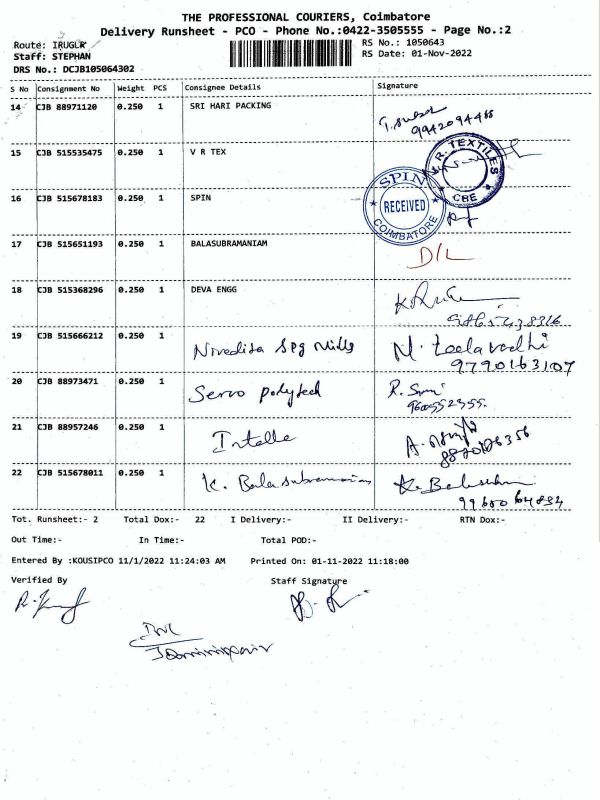 THE PROFESSIONAL COURIERS, Coimbatore
Delivery Runsheet - PCO - Phone No.:0422-3505555 - Page No.:2
Route: IRUGLR
RS No.: 1050643
Staff: STEPHAN
RS Date: 01-Nov-2022
DRS No.: DCJB105064302
S No Consignment No Weight PCS Consignee Details Signature
14 CJB 88971120 0.250 1 SRI HARI PACKING
9942094468
15 CJB 515535475 0.250 1 V R TEX
R. TEXTILES
CBE
16 CJB 515678183 0.250 1 SPIN
SPIN
RECEIVED
COIMBATORE
17 CJB 515651193 0.250 1 BALASUBRAMANIAM
D/L
18 CJB 515368296 0.250 1 DEVA ENGG
19 CJB 515666212 0.250 1 Novedita Spg Mills M. Leelavathi
9790163107
20 CJB 88973471 0.250 1 Servo polytech
9600552355.
21 CJB 88957246 0.250 1 Intelle
22 CJB 515678011 0.250 1 K. Balasubramanian
Tot. Runsheet:- 2 Total Dox:- 22 I Delivery:- II Delivery:- RTN Dox:-
Out Time:- In Time:- Total POD:-
Entered By :KOUSIPCO 11/1/2022 11:24:03 AM Printed On: 01-11-2022 11:18:00
Verified By Staff Signature